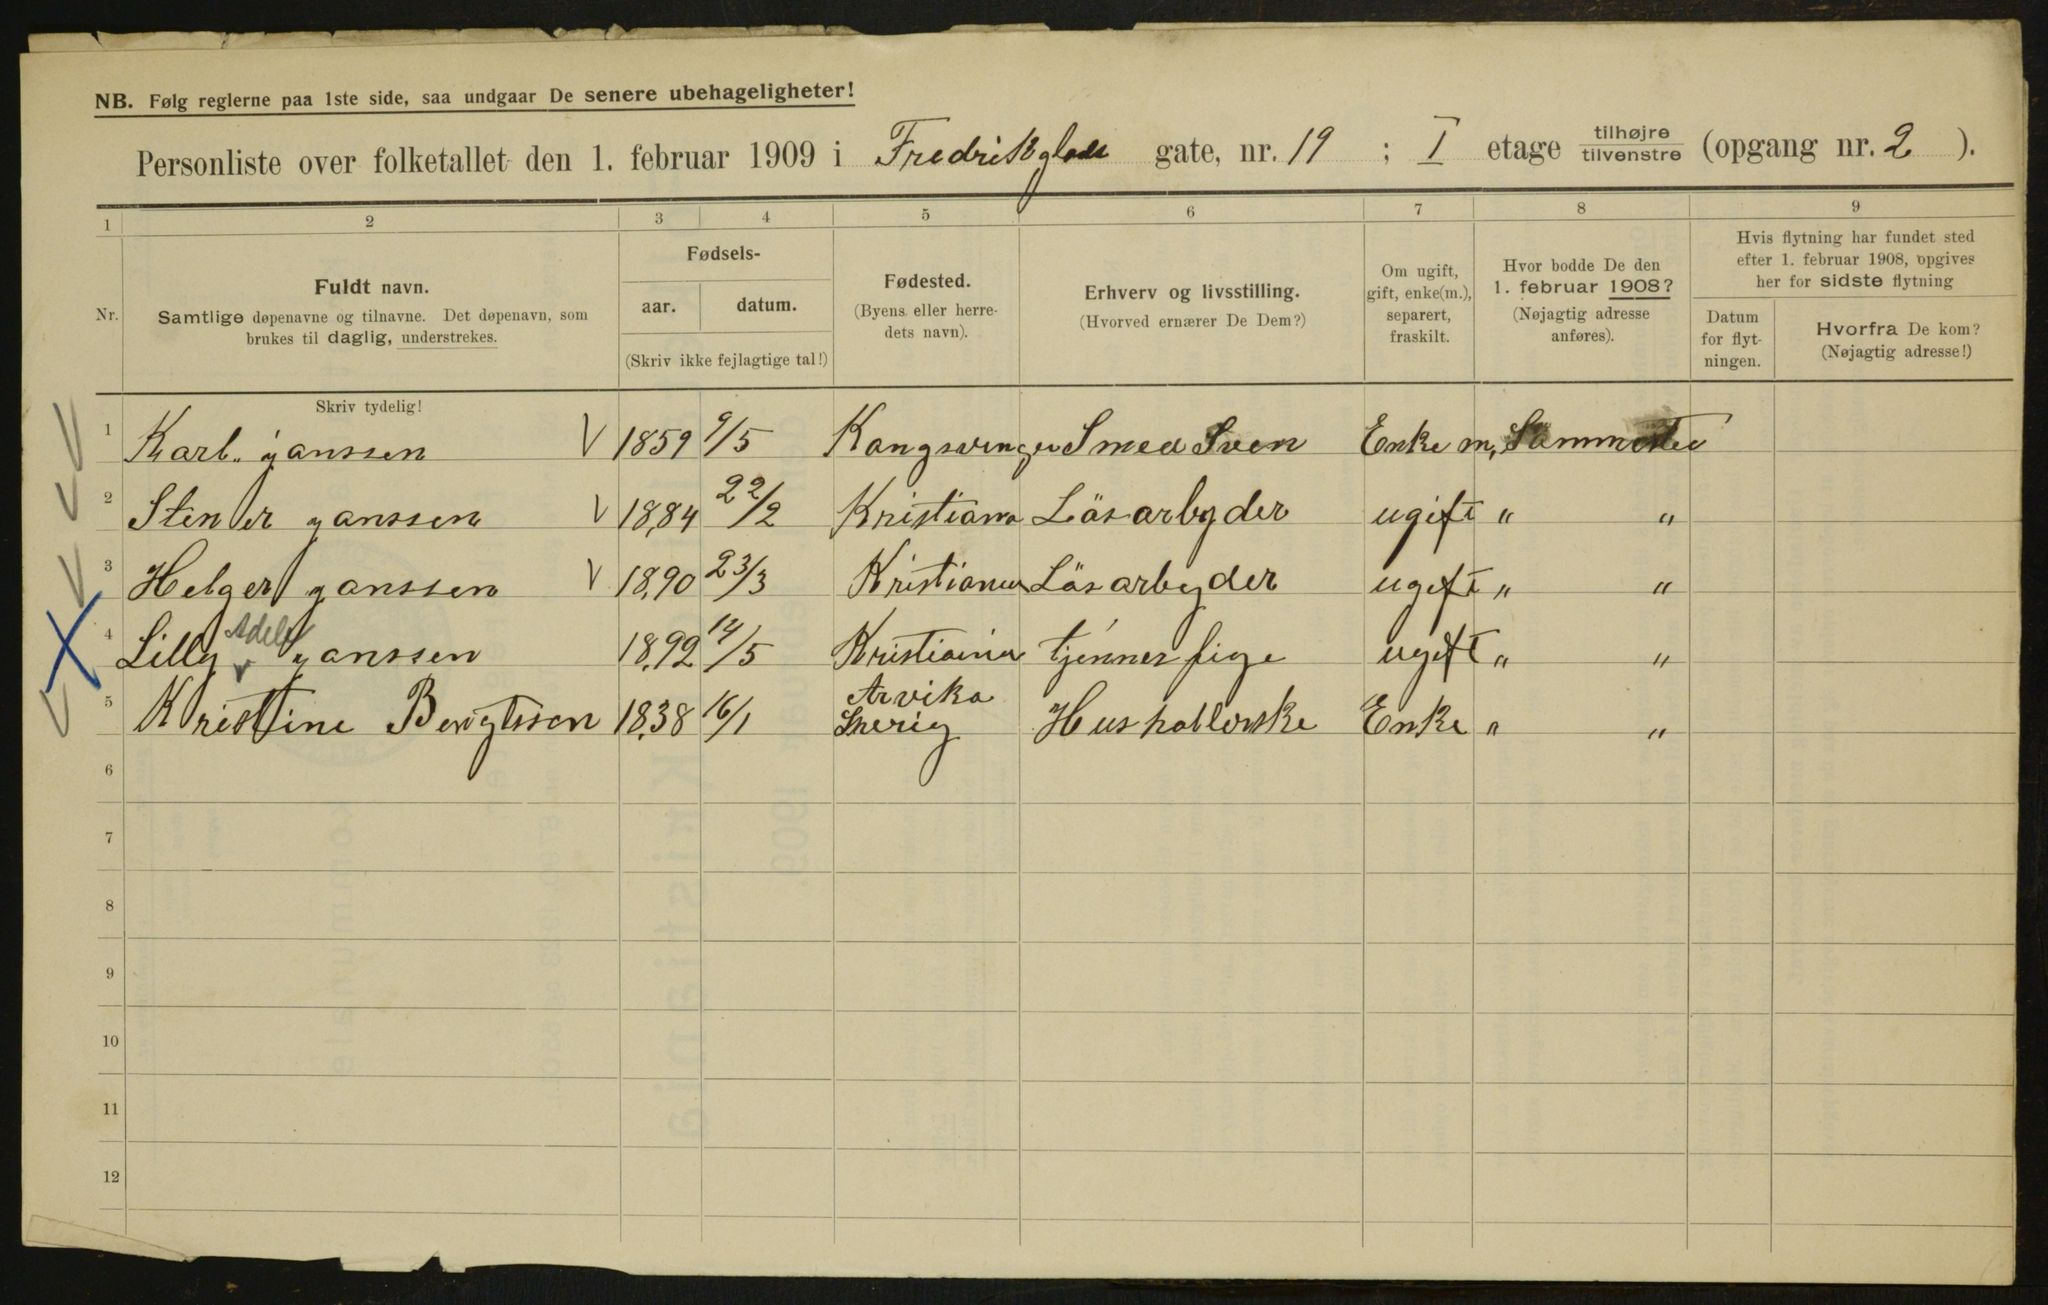 NB. Følg reglerne paa 1ste side, saa undgaar De senere ubehageligheter!
Personliste over folketallet den 1. februar 1909 i Fredrikglads gate, nr. 19 ; I etage tilhøjre / tilvenstre (opgang nr. 2 ).
1 2 3 4 5 6 7 8 9
Nr.
Fuldt navn.
Samtlige døpenavne og tilnavne. Det døpenavn, som
brukes til daglig, understrekes.
Skriv tydelig!
Fødsels-
aar. datum.
(Skriv ikke fejlagtige tal!)
Fødested.
(Byens eller herre-
dets navn).
Erhverv og livsstilling.
(Hvorved ernærer De Dem?)
Om ugift,
gift, enke(m.),
separert,
fraskilt.
Hvor bodde De den
1. februar 1908?
(Nøjagtig adresse
anføres).
Hvis flytning har fundet sted
efter 1. februar 1908, opgives
her for sidste flytning
Datum
for flyt-
ningen.
Hvorfra De kom?
(Nøjagtig adresse!)
1 Karl. janssen V 1859 9/5 Kangsvinger Smed Sven Enke m, Sammested
2 Stener janssen V 1884 22/2 Kristiana Løsarbyder ugift " "
3 Helger janssen V 1890 23/3 Kristiania Løsarbyder ugift " "
4 Lilly Adele janssen 1892 14/5 Kristiania tjenner pige ugift " "
5 Kristine Bengtsson 1838 16/1 Arvika Sverig Husholderske Enke " "
6
7
8
9
10
11
12